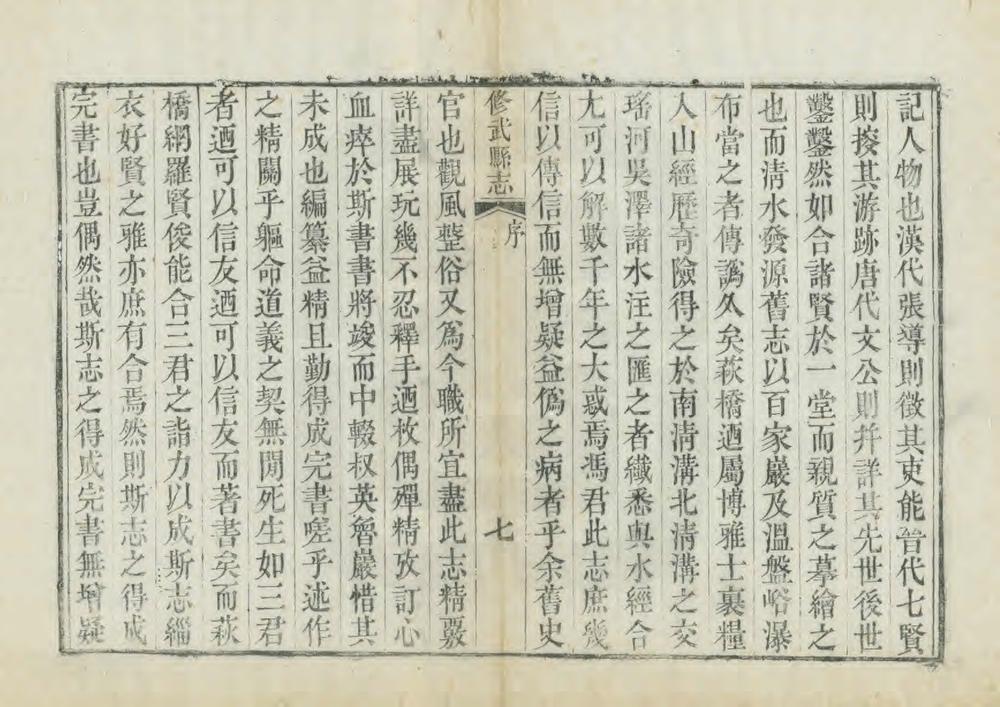 記人物也漢代張導則徵其吏能晉代七賢
則按其游跡唐代文公則幷詳其先世後世
鑿鑿然如合諸賢於一堂而親質之摹繪之
也而清水發源舊志以百家巖及溫盤峪瀑
布當之者傳譌久矣萩橋迺屬博雅士裹糧
入山經歷奇險得之於南清溝北清溝之交
瑤河吳澤諸水注之匯之者纖悉與水經合
尢可以解數千年之大惑焉馮君此志庶幾
信以傳信而無增疑益僞之病者乎余舊史
修武縣志
序
七
官也觀風整俗又爲今職所宜盡此志精覈
詳盡展玩幾不忍釋手迺枚偶殫精攷訂心
血瘁於斯書書將竣而中輟叔英魯巖惜其
未成也編纂益精且勤得成完書嗟乎述作
之精關乎軀命道義之契無閒死生如三君
者迺可以信友迺可以信友而著書矣而萩
橋網羅賢俊能合三君之詣力以成斯志緇
衣好賢之雅亦庶有合焉然則斯志之得成
完書也豈偶然哉斯志之得成完書無增疑